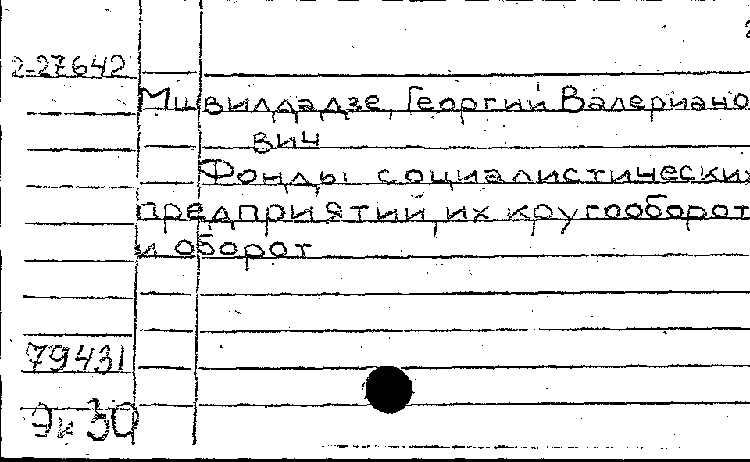 2-27642
Мшвилдадзе, Георгий Валериано
вич
Фонды социалистических
предприятий, их кругооборот
и оборот
79431
Эк 30